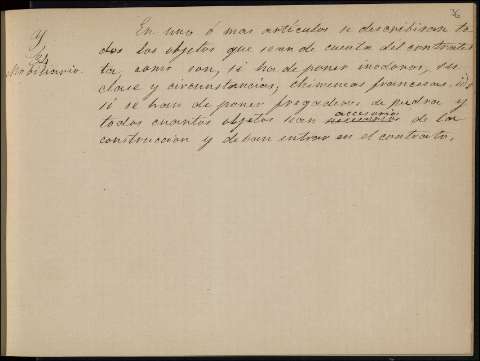 76
y
Mobiliario.
En uno ó mas artículos se describiran to
dos los objetos que sean de cuenta del contratis
ta, como son, si ha de poner inodoros, su
clase y circunstancias, chimeneas francesas,
si se han de poner fregaderos de piedra y
todos cuantos objetos sean accesorios de la
construccion y deban entrar en el contrato.